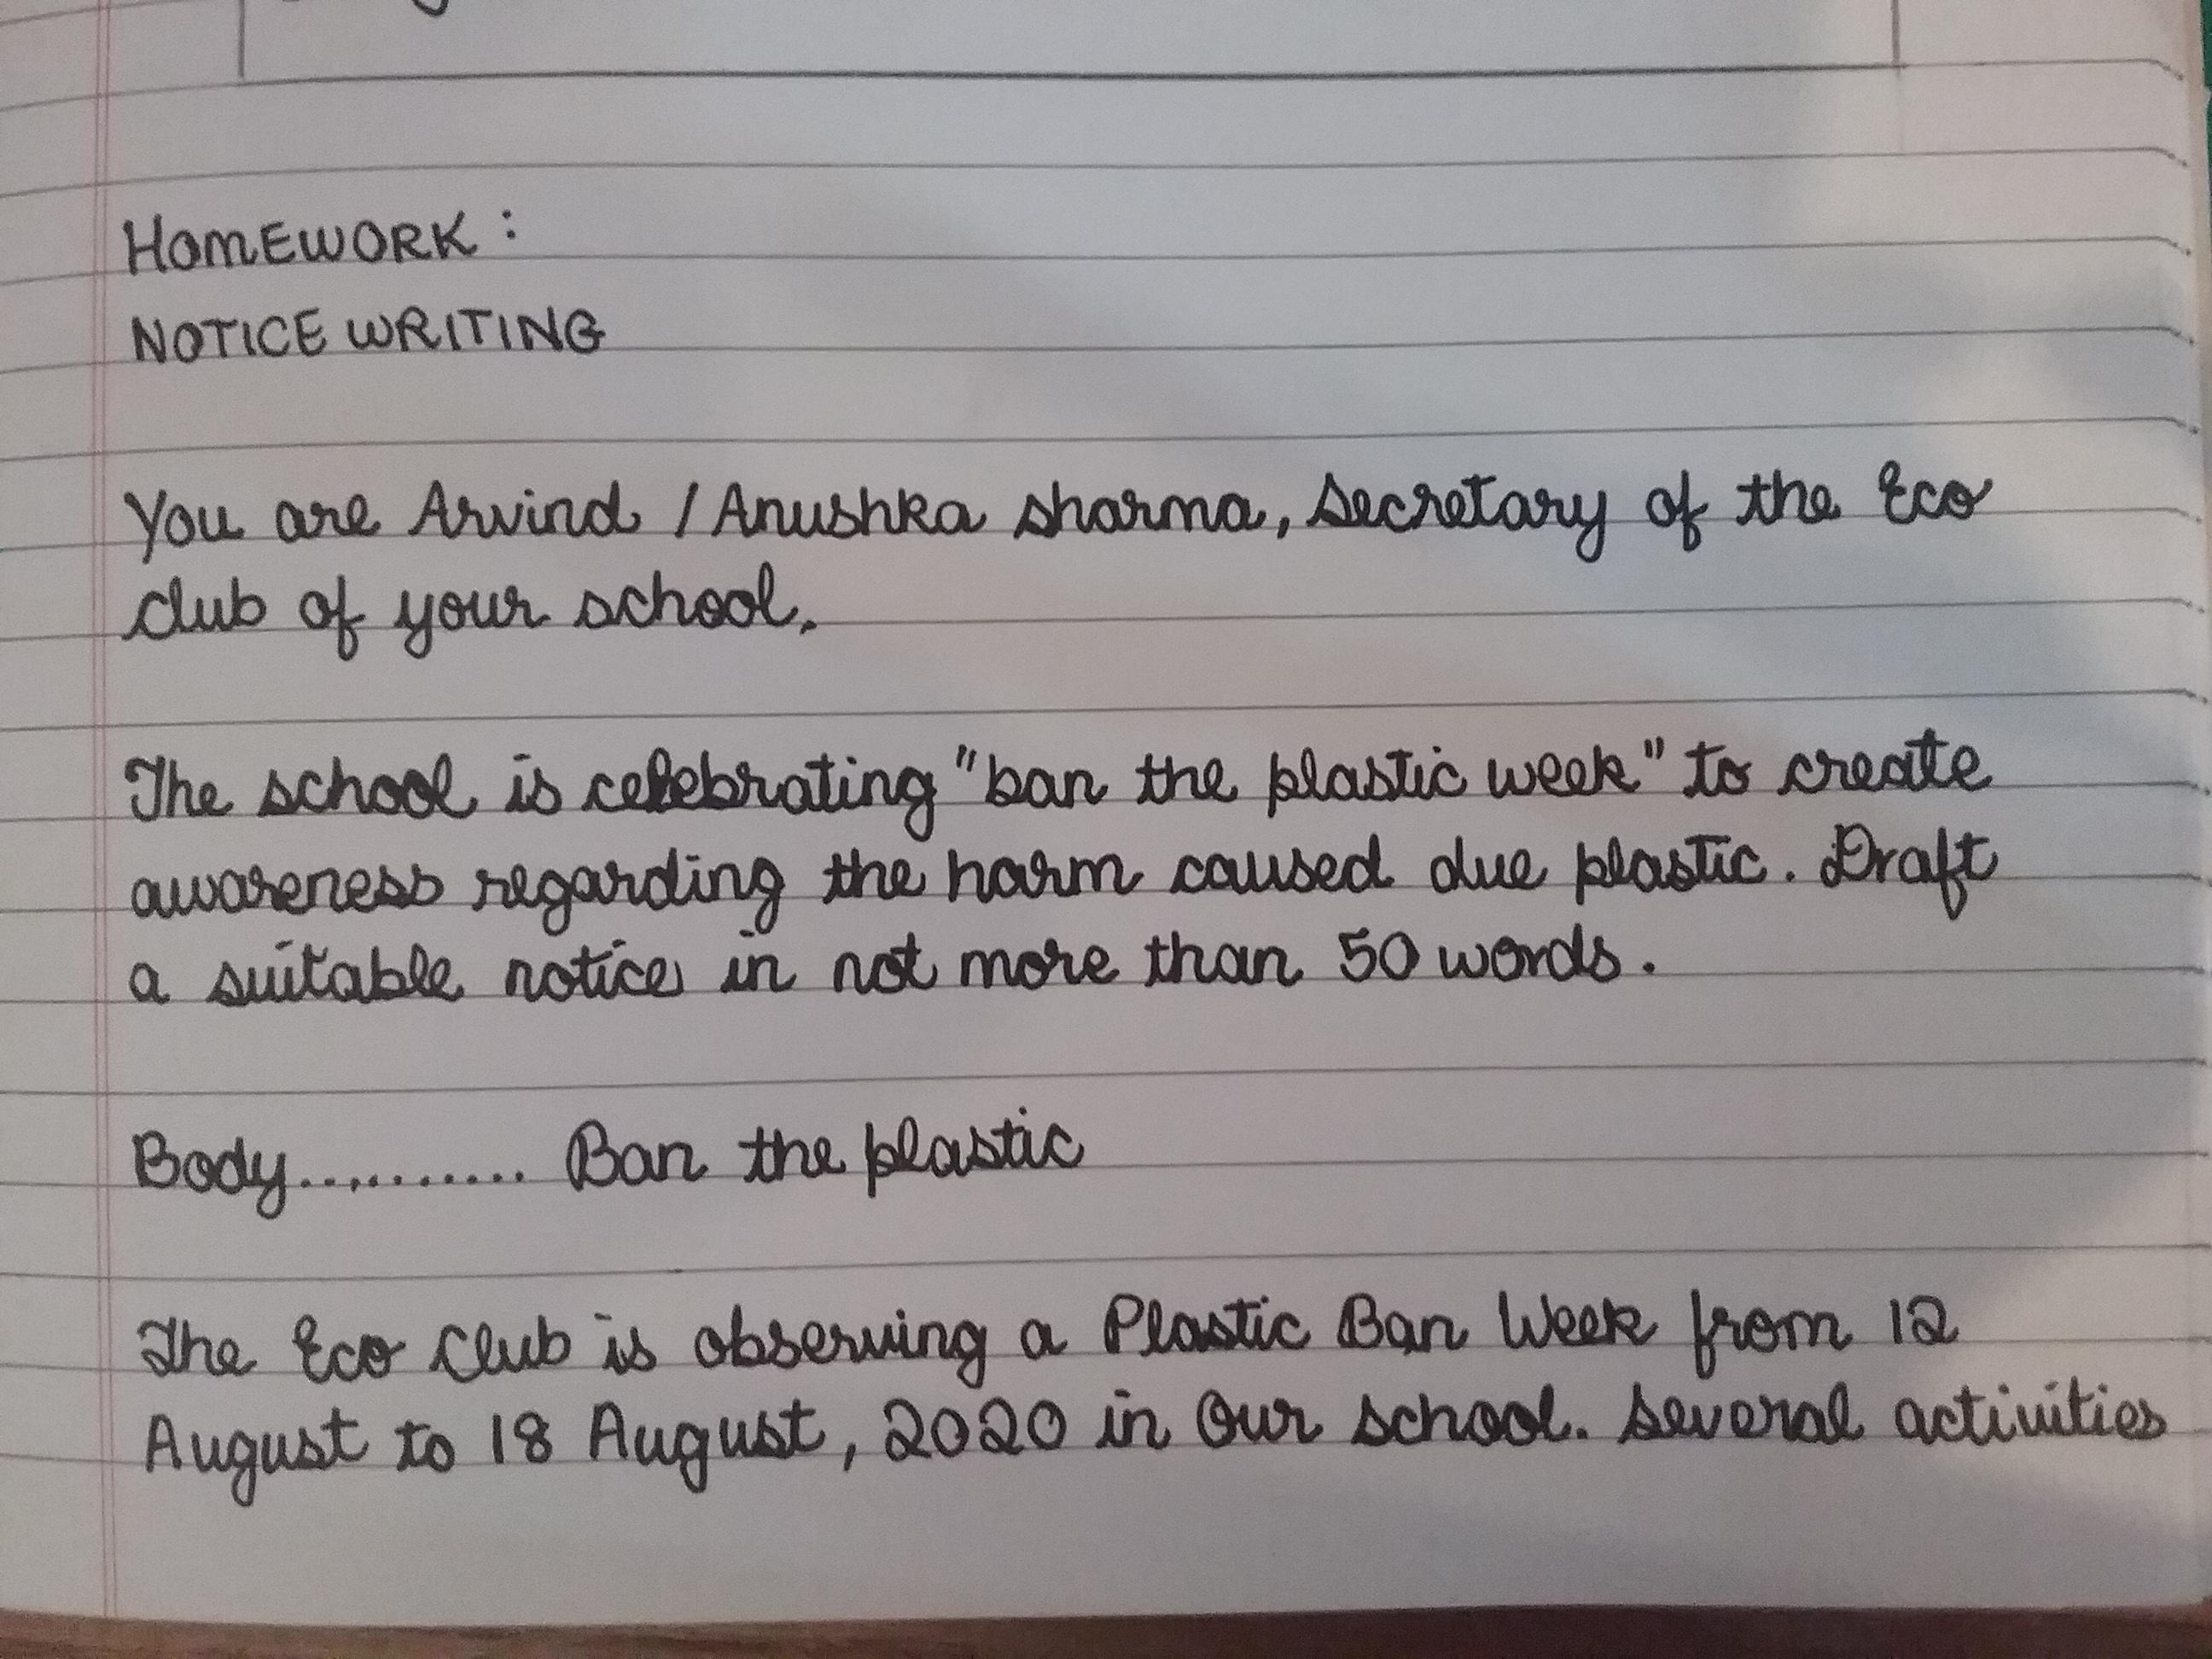 HOMEWORK :
NOTICE WRITING
You are Arvind / Anushka sharma, Secretary of the Eco
club of your school.
The school is celebrating "ban the plastic week" to create
awareness regarding the harm caused due plastic. Draft
a suitable notice in not more than 50 words.
Body.......... Ban the plastic
The Eco Club is observing a Plastic Ban Week from 12
August to 18 August, 2020 in Our school. Several activities